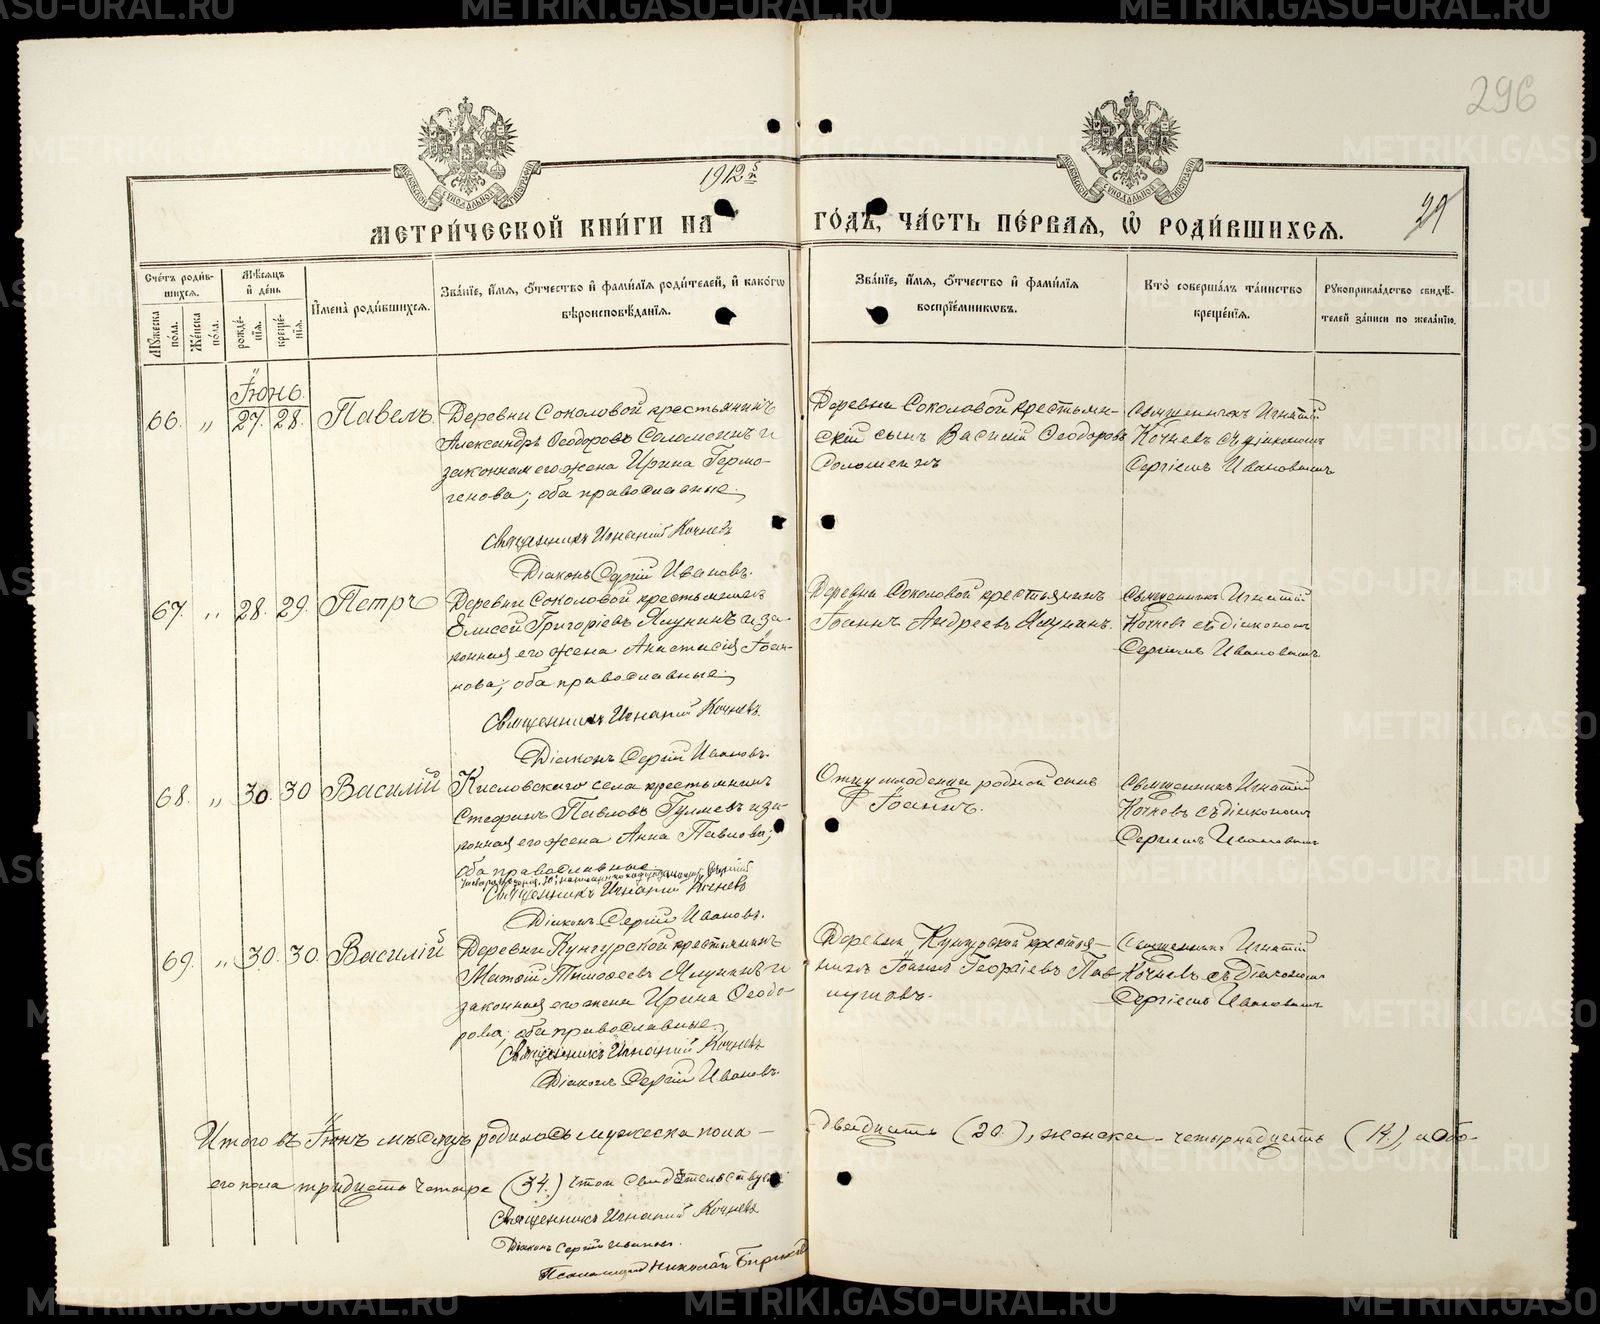 METRIKI.GASO-URAL.RU
296
1912
29
МЕТРИ́ЧЕСКОЙ КНИ́ГИ НА ГО́ДЪ, ЧА́СТЬ ПЕ́РВАЯ, Ѽ РОДИ́ВШИХСЯ.
Сче́тъ роди́в-
шихся.
Мѣ́сяцъ
и҆ де́нь
Мꙋ́жеска по́ла.
Же́нска по́ла.
рожде́-
нїя.
креще́-
нїя.
И҆мена̀ роди́вшихся.
Зва́нїе, и҆́мя, ѻ҆́тчество и҆ фами́лїя роди́телей, и҆ како́гѡ
вѣроисповѣ́данїя.
Зва́нїе, и҆́мя, ѻ҆́тчество и҆ фами́лїя
воспрїе́мникѡвъ.
Кто̀ соверша́лъ та́инство
креще́нїя.
Рꙋкоприкла́дство свидѣ́-
телей за́писи по жела́нїю.
Іюнь.
66. " 27. 28. Павелъ
Деревни Соколовой крестьянинъ
Александръ Ѳеодоровъ Соломеинъ и
законная его жена Ирина Гермо-
генова; оба православные.
Священникъ Игнатій Кочневъ
Діаконъ Сергій Ивановъ.
Деревни Соколовой крестьян-
скій сынъ Василій Ѳеодоровъ
Соломеинъ
Священникъ Игнатій
Кочневъ съ діакономъ
Сергіемъ Ивановымъ
67. " 28. 29. Петръ
Деревни Соколовой крестьянинъ
Елисей Григоріевъ Ялунинъ и за-
конная его жена Анастасія Іоан-
нова; оба православные.
Священникъ Игнатій Кочневъ.
Діаконъ Сергій Ивановъ.
Деревни Соколовой крестьянинъ
Іоаннъ Андреевъ Ялунинъ.
Священникъ Игнатій
Кочневъ съ діакономъ
Сергіемъ Ивановымъ
68. " 30. 30 Василій
Кисловскаго села крестьянинъ
Стефанъ Павловъ Гуляевъ и за-
конная его жена Анна Павлова;
оба православные.
Священникъ Игнатій Кочневъ
Діаконъ Сергій Ивановъ.
Отцу младенца родной сынъ
Іоаннъ.
Священникъ Игнатій
Кочневъ съ діакономъ
Сергіемъ Ивановымъ
69. " 30. 30. Василій
Деревни Кунгурской крестьянинъ
Тимоѳеевъ Ялунинъ и
законная его жена Ирина Ѳеодо-
рова; оба православные.
Священникъ Игнатій Кочневъ
Діаконъ Сергій Ивановъ.
Деревни Кунгурской крестья-
нинъ Іоаннъ Георгіевъ
Священникъ Игнатій
Кочневъ съ Діакономъ
Сергіемъ Ивановымъ
Итого въ Іюнѣ мѣсяцѣ родилось мужеска пола - двадцать (20.), женска - четырнадцать (14.), а обо-
его пола тридцать четыре (34.) въ томъ свидѣтельствуемъ
Священникъ Игнатій Кочневъ
Діаконъ Сергій Ивановъ.
Псаломщикъ Николай